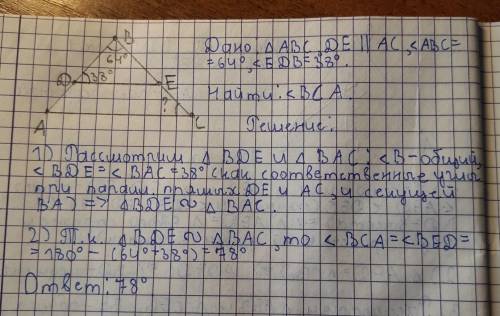 B
64°
D
38°
E
?
A
C
Дано, △ ABC, DE || AC, <ABC=
=64°, <EDB=38°.
Найти: <BCA.
Решение:
1) Рассмотрим △ BDE и △ BAC: <B-общий,
<BDE=<BAC=38° (как соответственные углы
при паралл. прямых DE и AC, и секущей
BA) => △BDE ∾ △ BAC.
2) Т.к. △ BDE ∾ △BAC, то <BCA=<BED=
=180°-(64°+38°)=78°
Ответ: 78°